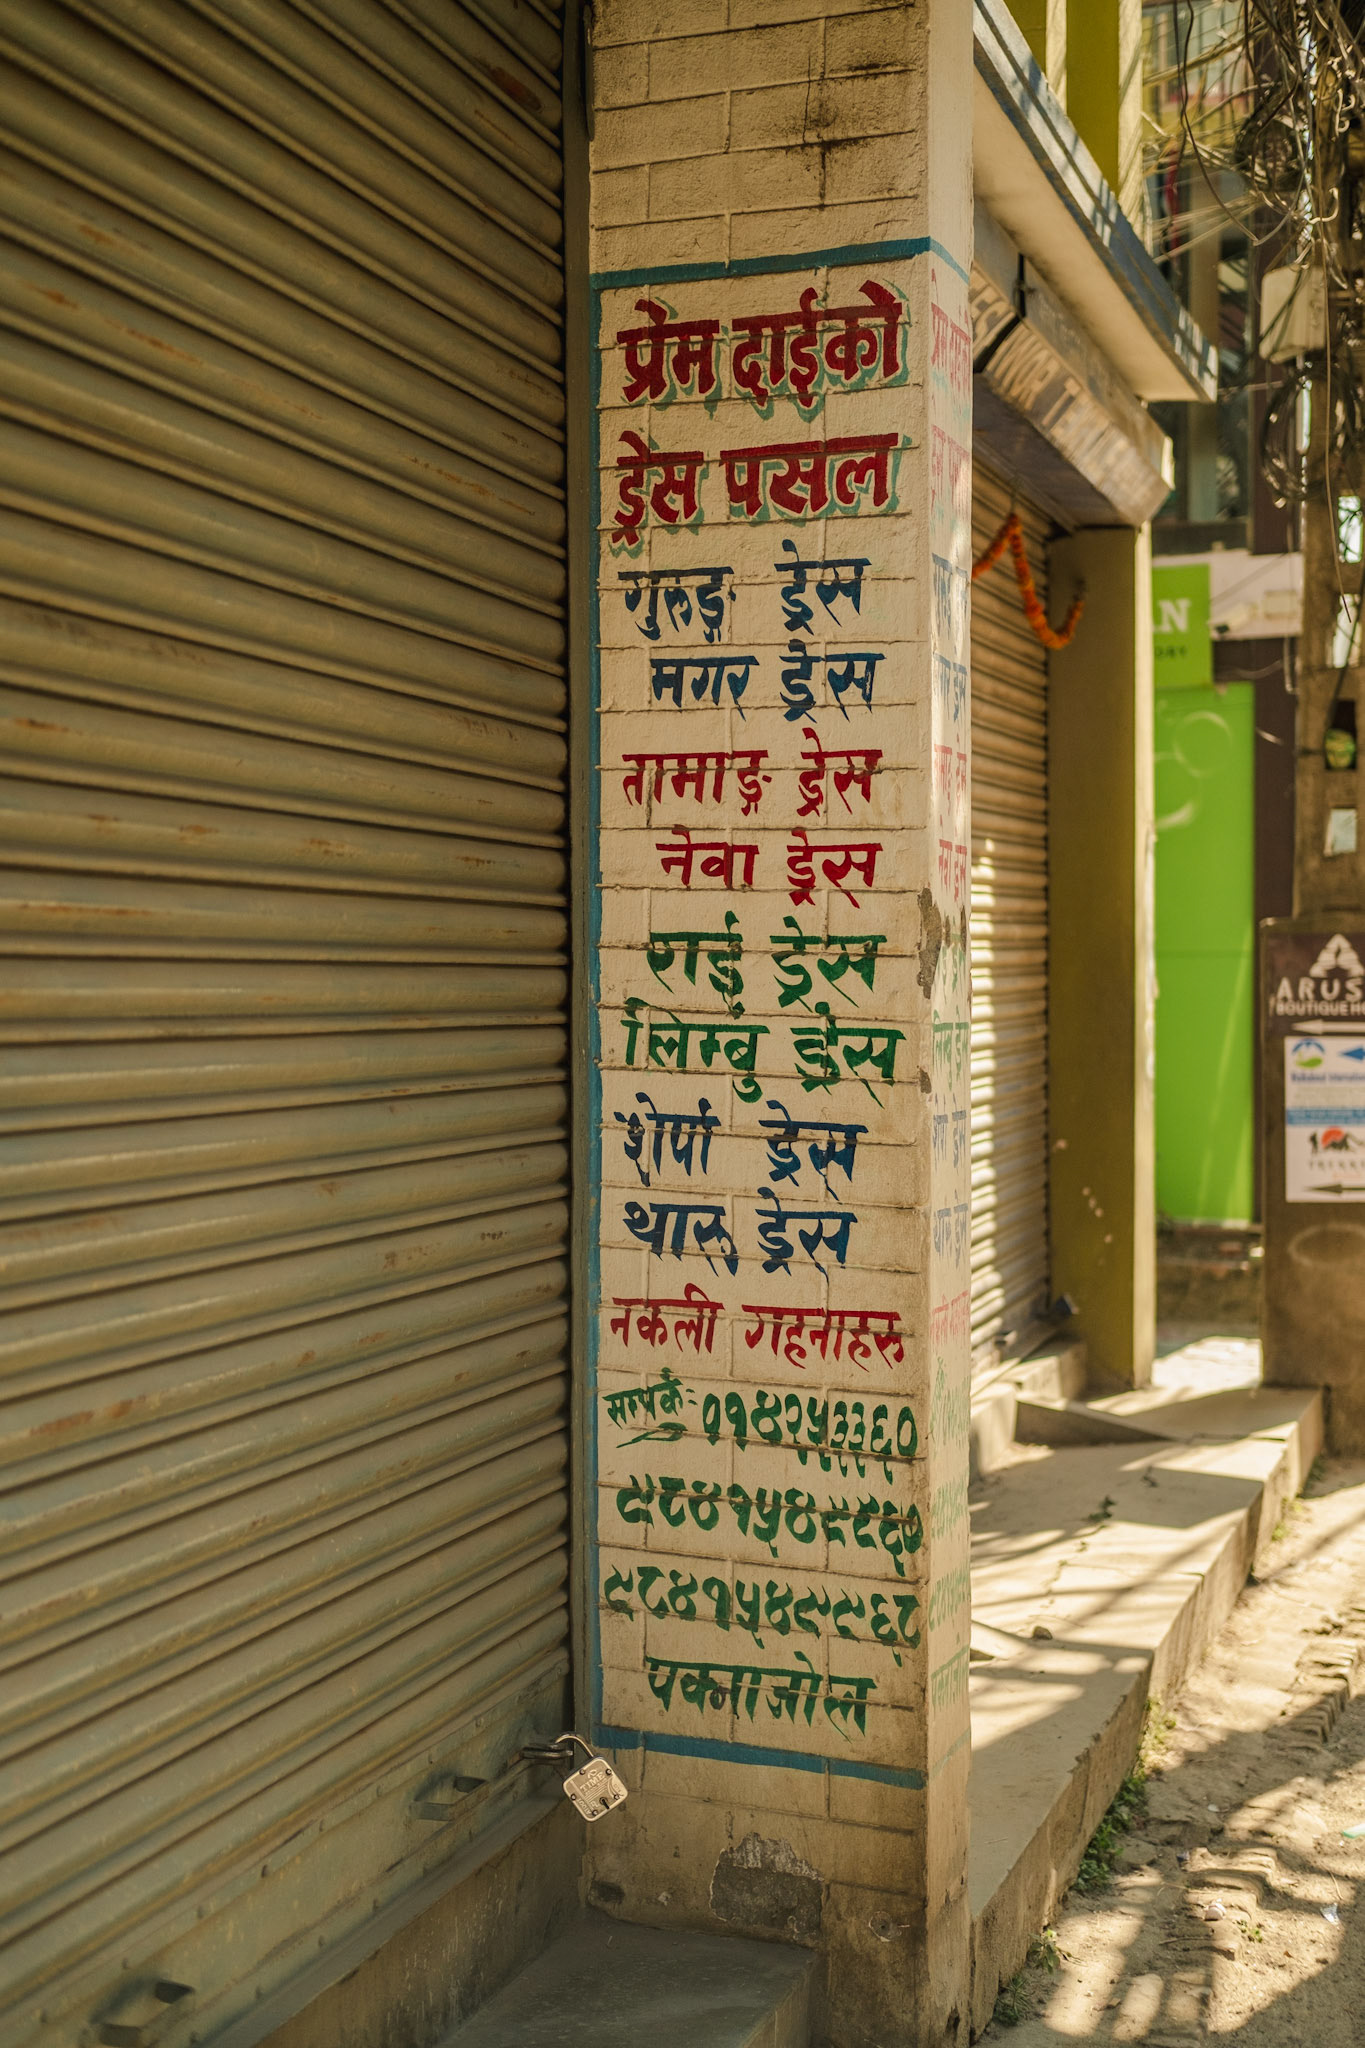 प्रेम दाईको
ड्रेस पसल
गुरुङ ड्रेस
मगर ड्रेस
तामाङ ड्रेस
नेवा ड्रेस
राई ड्रेस
लिम्बु ड्रेस
शेर्पा ड्रेस
थारू ड्रेस
नकली गहनाहरू
सम्पर्क: ०१४२५३३६०
९८४१५४९९६७
९८४१५४९९६८
पक्नाजोल
TIME
ARUS
BOUTIQUE